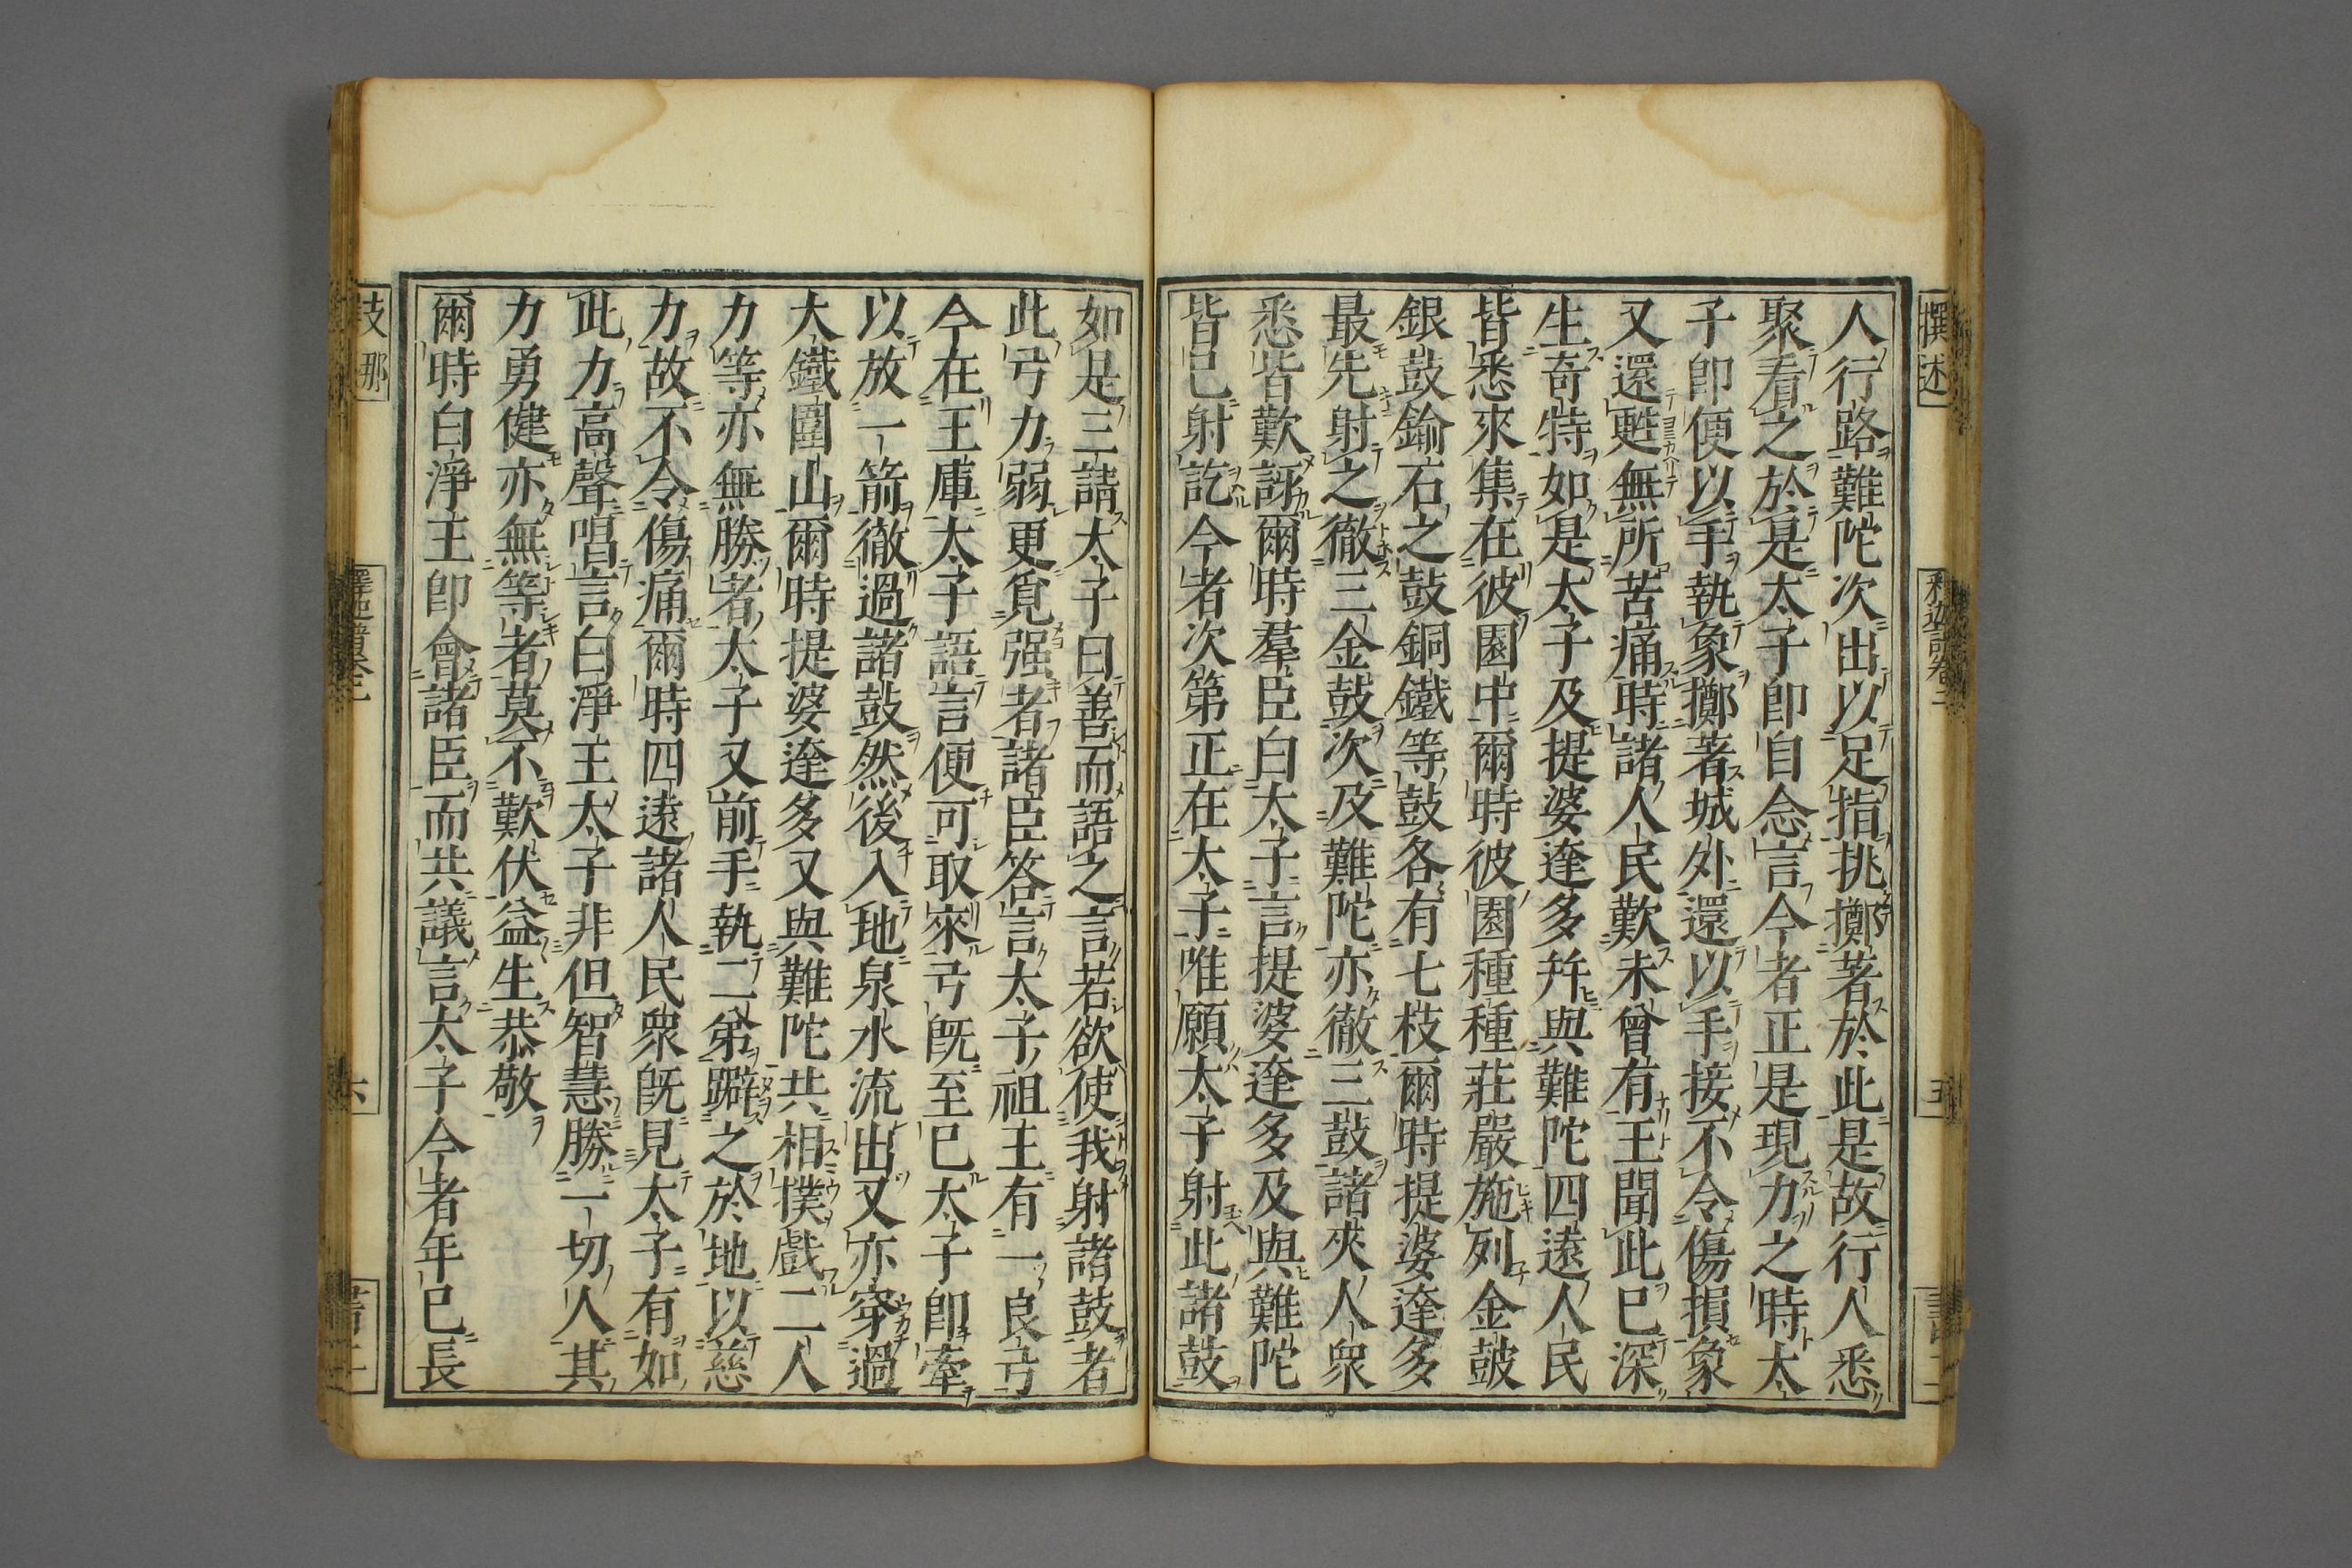 撰述
釈迦譜卷二
五
人行路難陀次出以足指挑擲著於此是故行人悉
聚看之於是太子卽自念言今者正是現力之時太
子卽便以手執象擲著城外還以手接不令傷損象
又還甦無所苦痛時諸人民歎未曾有王聞此已深
生奇特如是太子及提婆達多幷與難陀四遠人民
皆悉來集在彼園中爾時彼園種種莊嚴施列金鼓
銀鼓鍮石之鼓銅鐵等鼓各有七枝爾時提婆達多
最先射之徹三金鼓次及難陀亦徹三鼓諸來人衆
悉皆歎訝爾時羣臣白太子言提婆達多及與難陀
皆已射訖今者次第正在太子唯願太子射此諸鼓
如是三請太子曰善而語之言若欲使我射諸鼓者
此弓力弱更覓强者諸臣答言太子祖王有一良弓
今在王庫太子語言便可取來弓旣至已太子卽牽
以放一箭徹過諸鼓然後入地泉水流出又亦穿過
大鐵圍山爾時提婆達多又與難陀共相撲戲二人
力等亦無勝者太子又前手執二弟躃之於地以慈
力故不令傷痛爾時四遠諸人民衆旣見太子有如
此力高聲唱言白淨王太子非但智慧勝一切人其
力勇健亦無等者莫不歎伏益生恭敬
爾時白淨王卽會諸臣而共議言太子今者年已長
支那
六